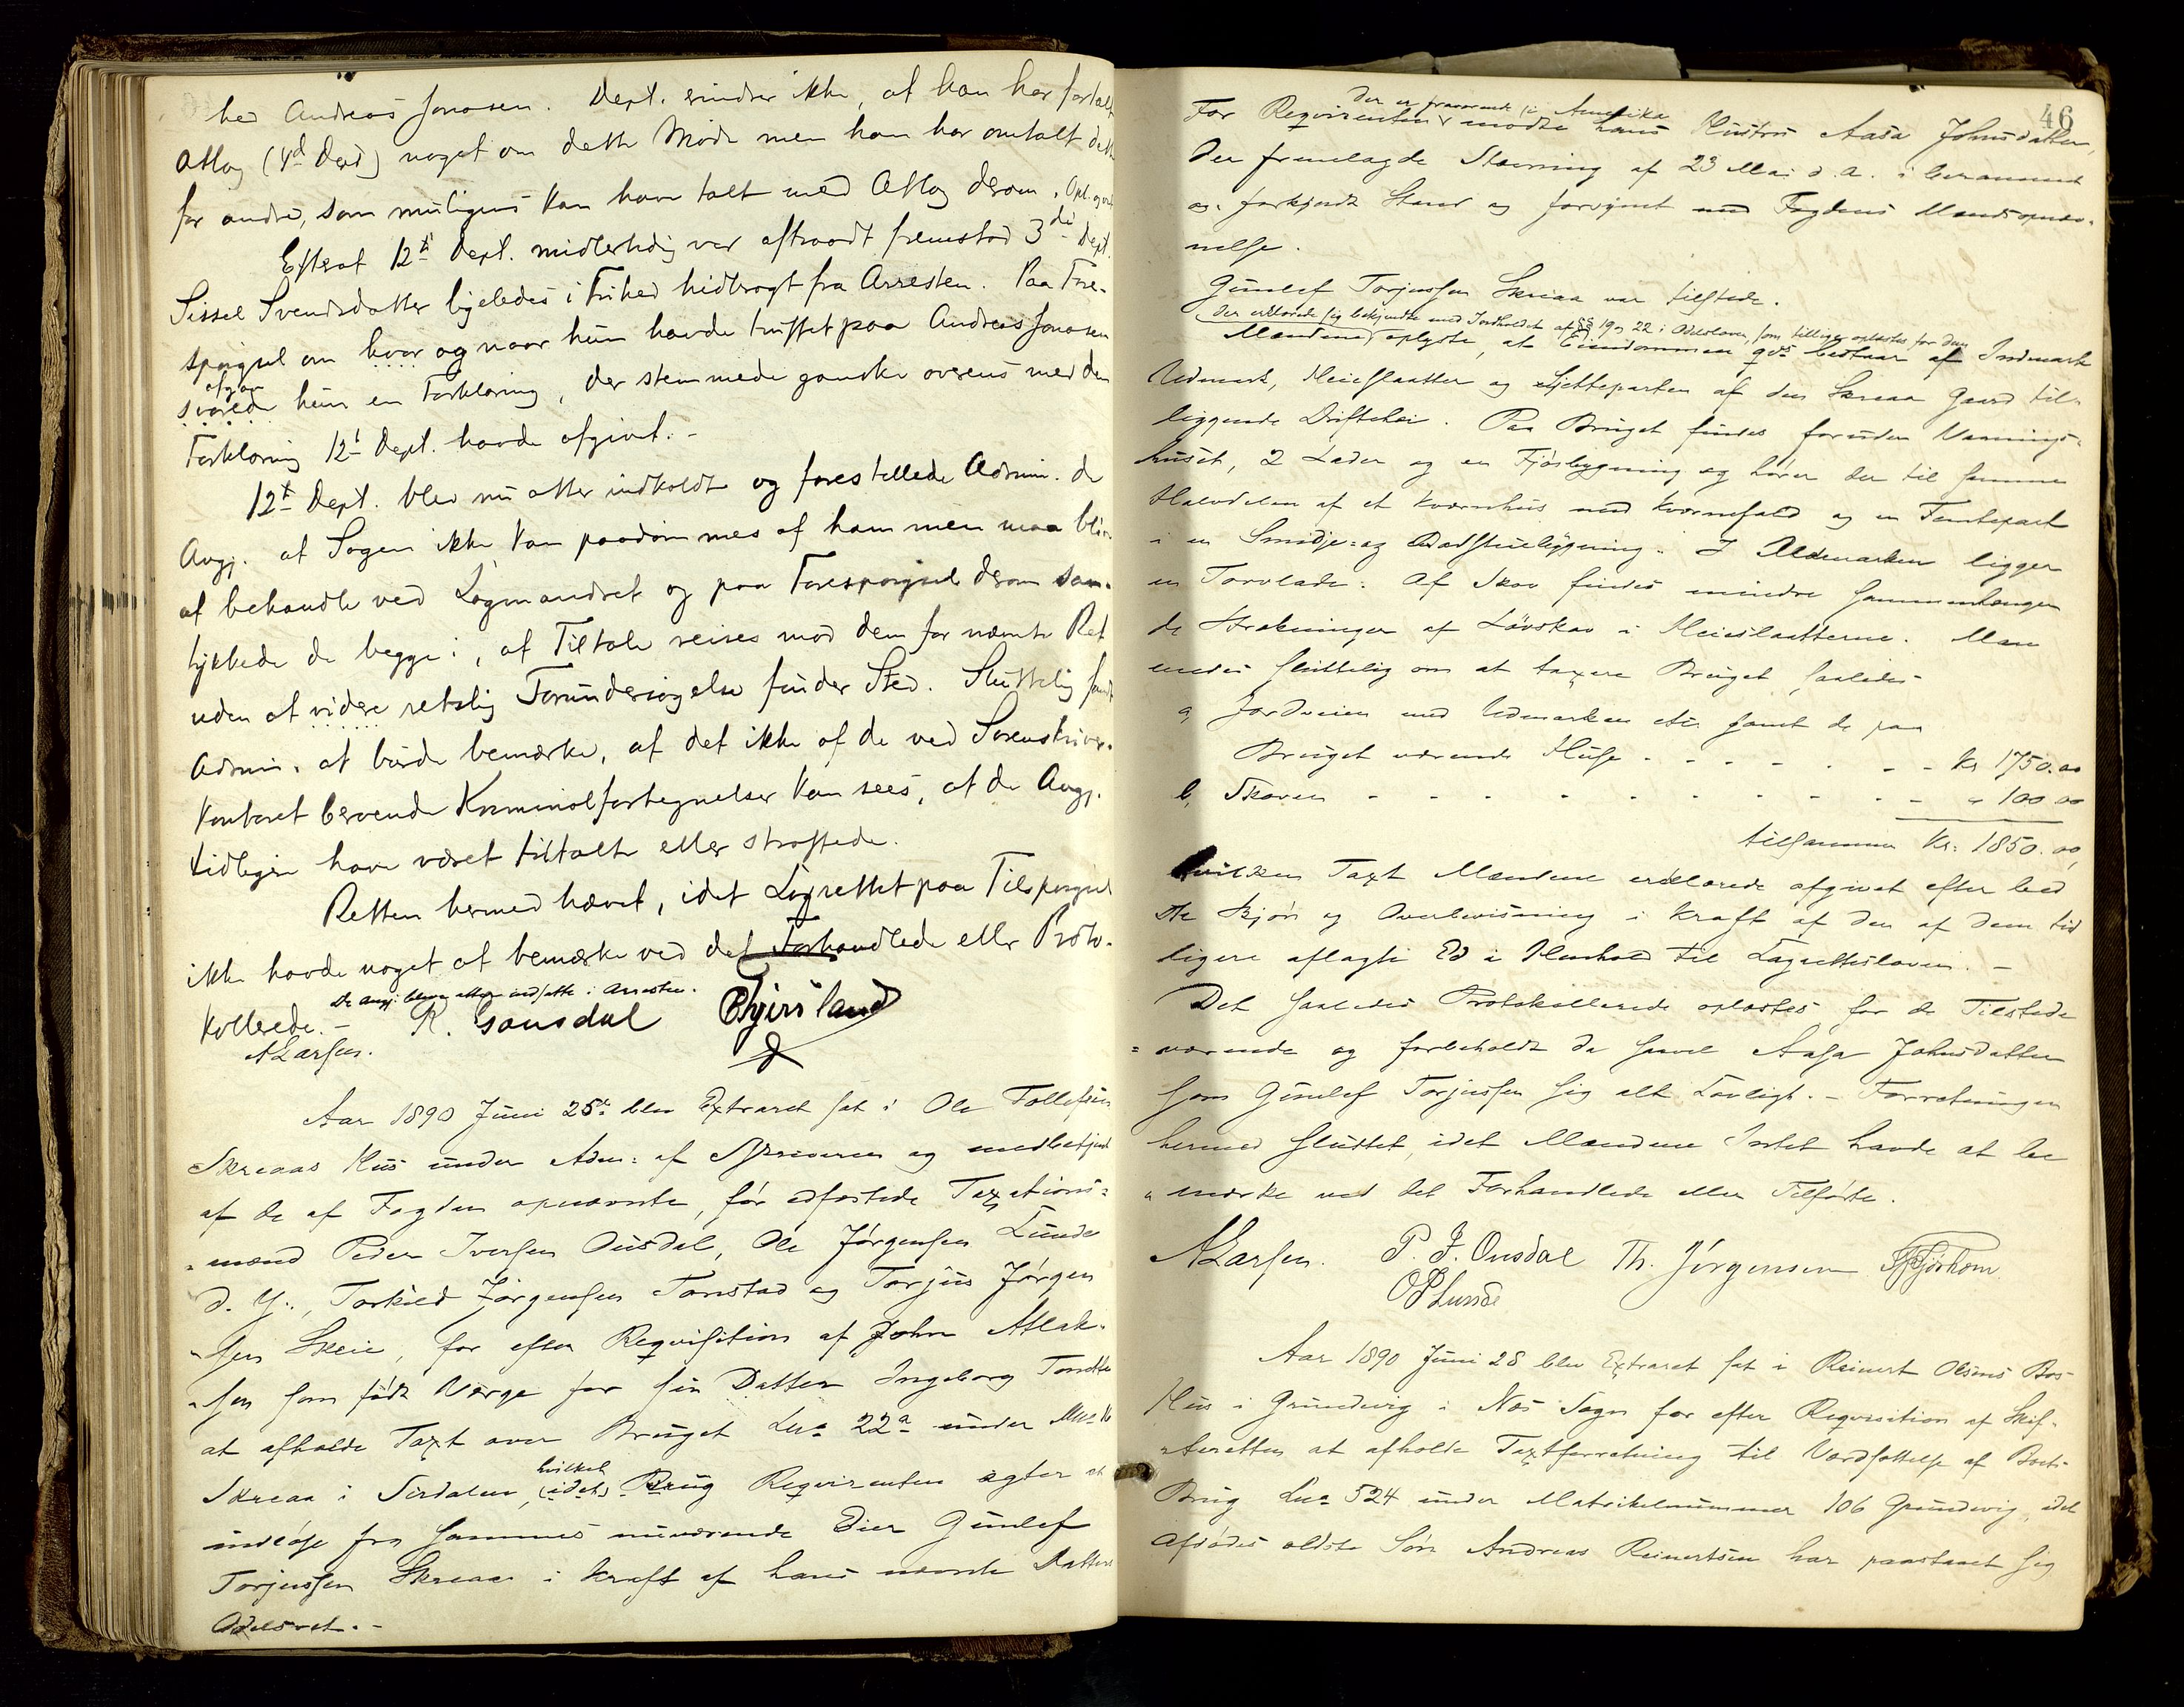 hed Andreas Jonasen. Dept. erindrer ikke, at han har fortalt
Atlag (4d Dept) noget om dette Møde men han har omtalt dette
for andre, som muligens kan have talt med Atlag derom. Opl. og vedt.
Efterat 12te Dept. midlertidig var aftraadt fremstod 3die Dept.
Sissel Svendsdatter ligeledes i Frihed hidbragt fra Arresten. Paa Fore-
spørgsel om hvor og naar hun havde truffet paa Andreas Jonasen
afgav
svarede hun en Forklaring, der stemmede ganske overens med den
Forklaring 12te Dept. havde afgivet.-
12te Dept. blev nu atter indkaldt og forestillede Admin. de
Angj. at Sagen ikke kan paadømmes af ham men maa bli-
at behandle ved Lagmandret og paa Forespørgsel derom sam-
tykkede de begge i, at Tiltale reises mod dem for nævnte Ret
uden at videre retslig Forundersøgelse finder Sted. Sluttelig fandt
Admin. at burde bemærke, at det ikke af de ved Sorenskriver-
kontoret beroende Kriminalfortegnelser kan sees, at de Angj.
tidligere have været tiltalt eller straffede.
Retten hermed hævet, idet Lagrettet paa Tilspørgsel
ikke havde noget at bemærke ved det Forhandlede eller Proto-
De Angj. bleve atter indsatte i Arresten.
kollerede.- R. Gausdal
ALarsen.
Aar 1890 Juni 25de blev Extraret sat i Ole Tollefsen
Skreaas Hus under Adm: af Skriveren og medbetjent
af de af Fogden opnævnte, før edfæstede Taxations-
mænd Peder Iversen Ousdal, Ole Jørgensen Lunde
d. y., Torkild Jørgensen Tonstad og Torjus Jørgen
sen Skeie, for efter Requisition af John Atlak-
sen som født Værge for sin Datter Ingeborg Tonette
at afholde Taxt over Bruget Lno 22a under Mno 16
hvilket
Skreaa i Sirdalen, (idet) Brug Requirenten agter at
indløse fra sammes nuværende Eier Gunlef
Torjussen Skreaa i Kraft af hans nævnte Datters
Odelsret.-
46
der er fraværende i Amerika
For Requirenten mødte hans Hustru Aasa Johnsdatter,
der fremlagde Stævning af 23 Mai d.a. i beramment
og forkyndt Stand og forsynet med Fogdens Mandsopnæv-
nelse.
Gunlef Torjussen Skreaa var tilstede.
der erklærede sig bekjendte med Indholdet af §§ 19 og 22 i Odelsloven, som tillige oplæstes for dem
Mændene oplyste, at Eiendommen qvst bestaar af Indmark
Udmark, Heieslaatter og Sjetteparten af den Skreaa Gaard til-
liggende Driftehei. Paa Bruget findes foruden Vaanings-
huset, 2 Lader og en Fjøsbygning og hører der til samme
Halvdelen af et Kværnhus med Kværnefald og en Femtepart
i en Smedje- og Badstuebygning. I Udmarken ligger
en Torvlade. Af Skov findes mindre sammenhængen
de Strækninger af Løvskov i Heieslaatterne. Man
enedes sluttelig om at taxere Bruget saaledes
a, Jordveien med Udmarken etc samt de paa
Bruget værende Huse - - - - - - - Kr 1750.00
b, Skoven - - - - - - - - - - - " 100.00
tilsammen Kr. 1850.00,
hvilken Taxt Mændene erklærede afgivet efter bed
ste Skjøn og Overbevisning i Kraft af den af dem tid
ligere aflagte Ed i Henhold til Lagrettesloven.-
Det saaledes Protokollerede oplæstes for de Tilstede
værende og forbeholdt da saavel Aasa Johnsdatter
som Gunlef Torjussen sig alt Lovligt.- Forretningen
hermed sluttet, idet Mændene Intet havde at be
mærke ved det Forhandlede eller Tilførte.
ALarsen. P. J. Ousdal Th. Jørgensen
Lunde
Aar 1890 Juni 28 blev Extraret sat i Reinert Olsens Bos
Hus i Grundevig i Næs Sogn for efter Requisition af Skif-
teretten at afholde Taxtforretning til Værdsættelse af Boets
Brug Lno 524 under Matrikelnummer 106 Grundevig, idet
Afdødes ældste Søn Andreas Reinertsen har paastaaet sig